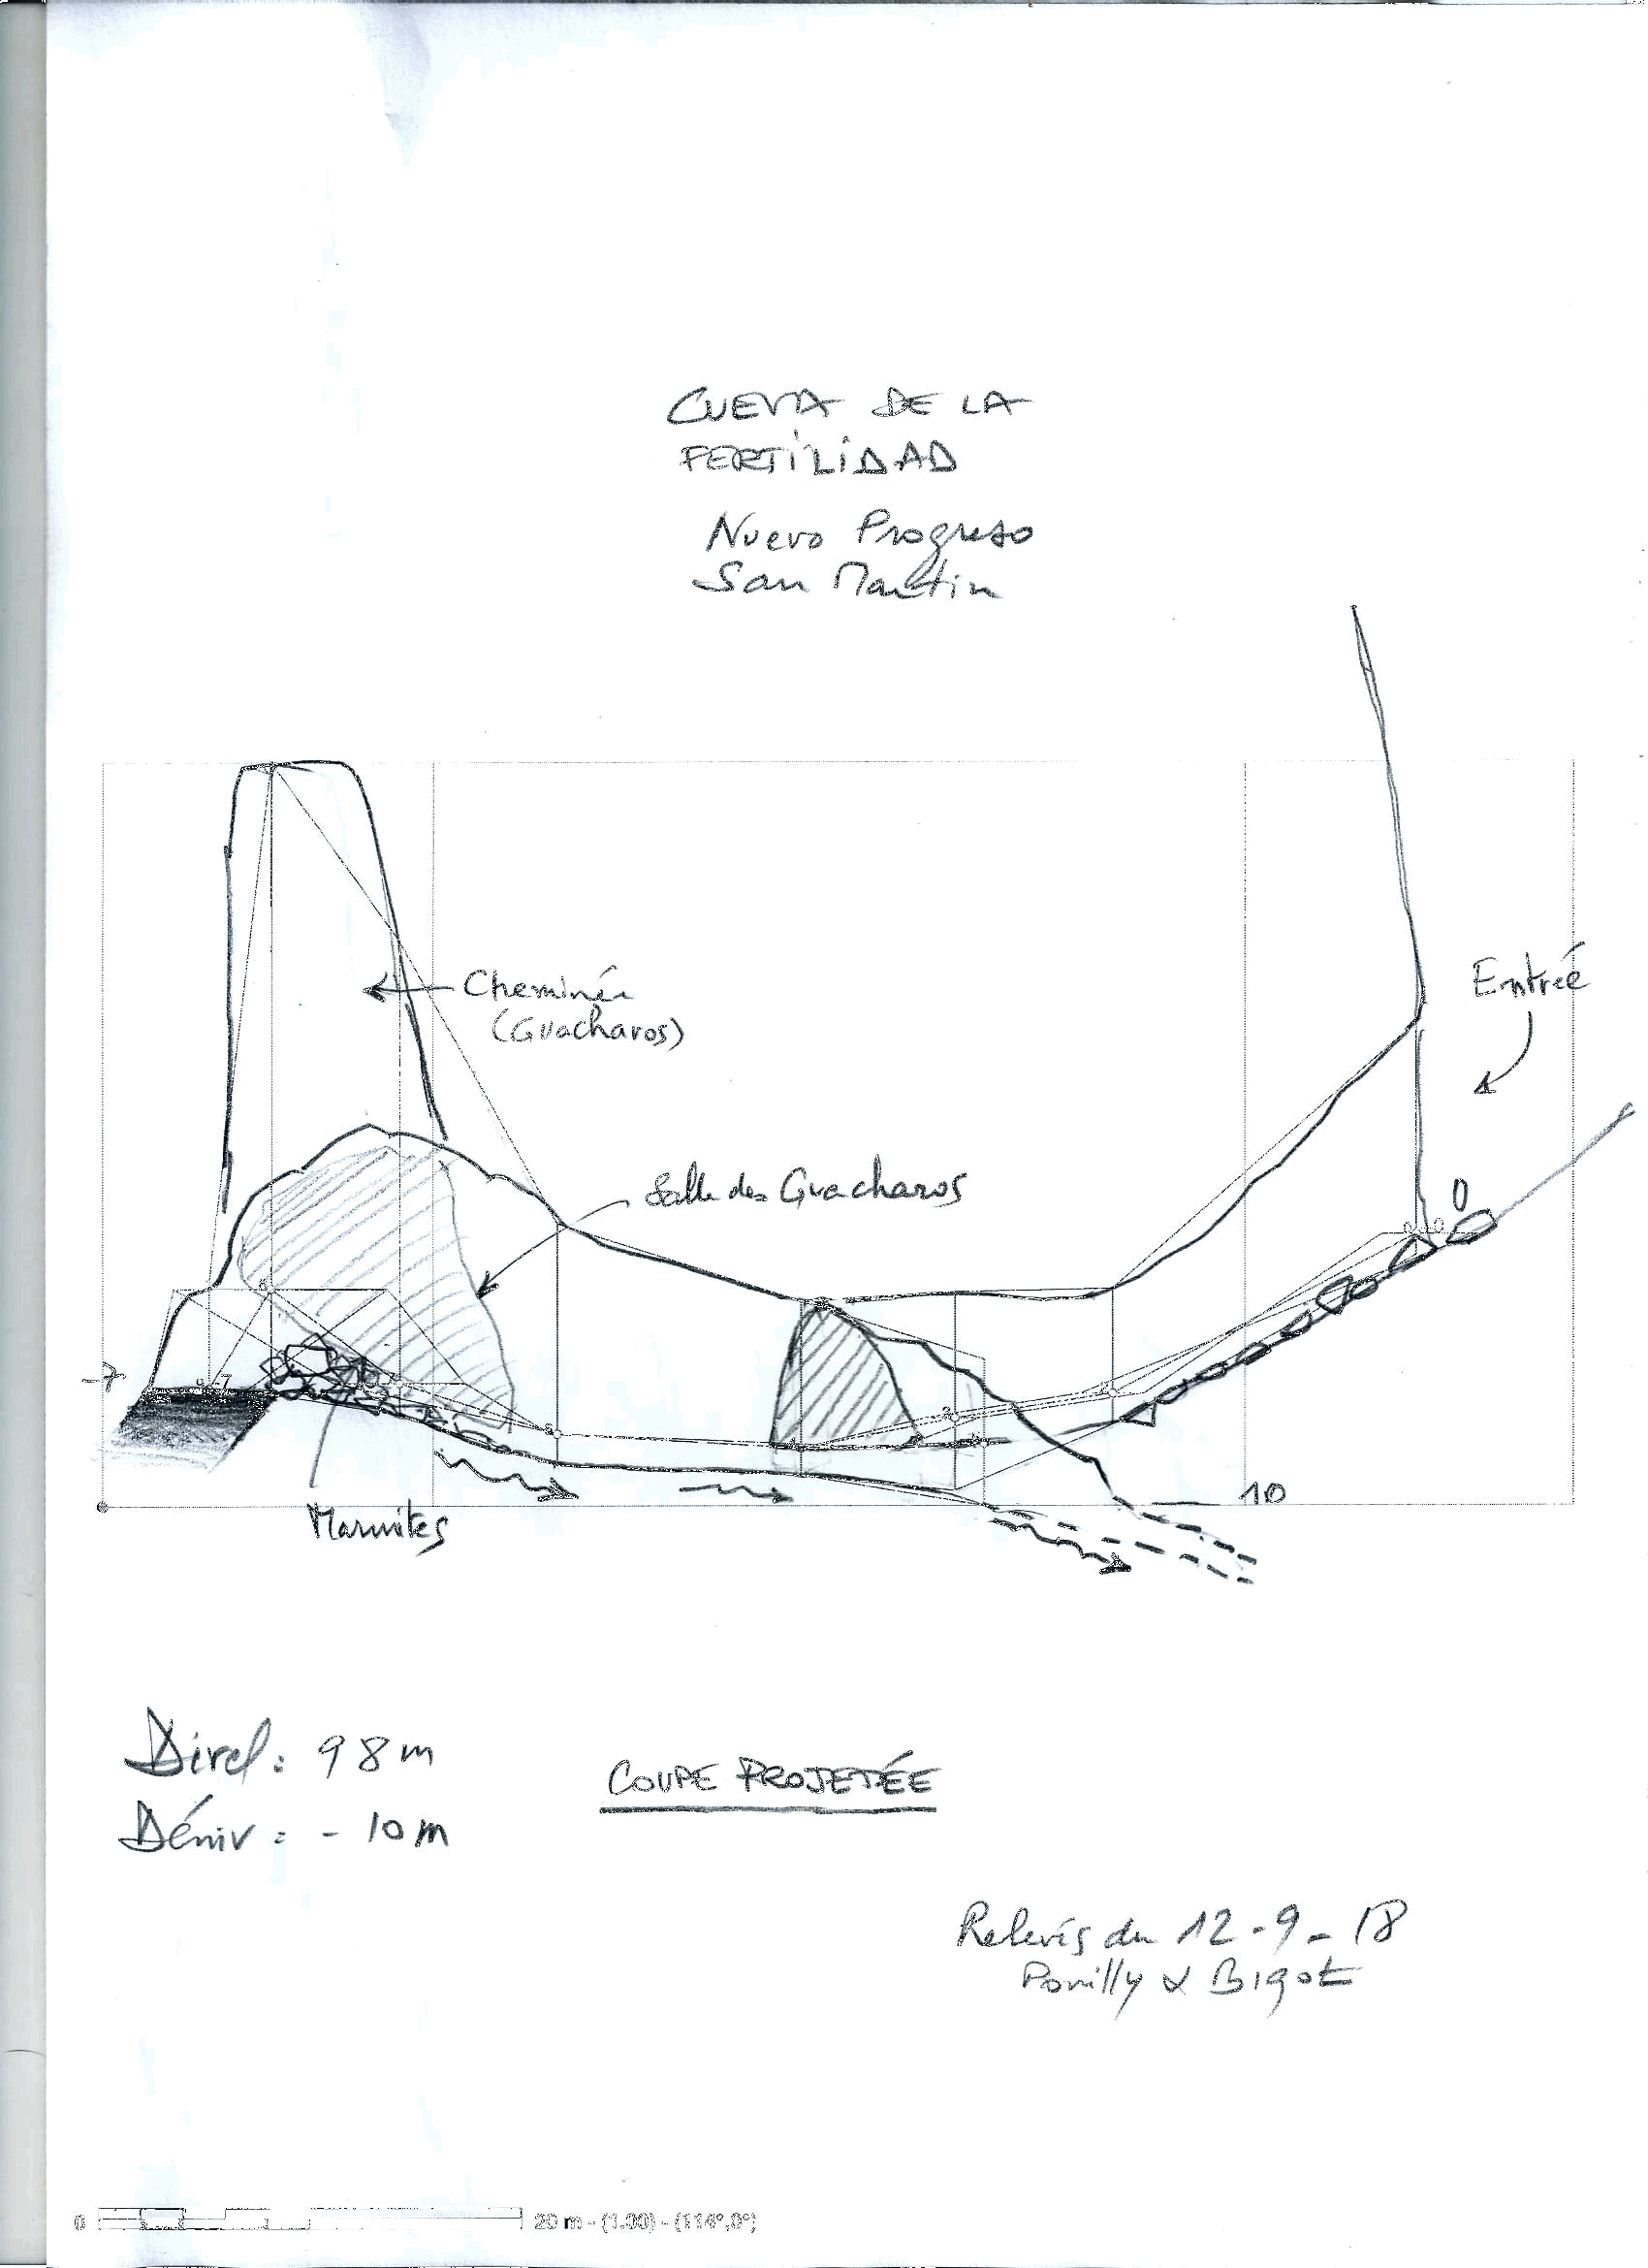 CUEVA DE LA
FERTILIDAD
Nuevo Progreso
San Martin
Entrée
Cheminée
(Guacharos)
Salle des Guacharos
0
-7
10
Marmites
Dével: 98m
Déniv: -10m
COUPE PROJETÉE
Relevés du 12-9-18
Pouilly & Bigot
0 20 m - (1.00) - (114°,0°)